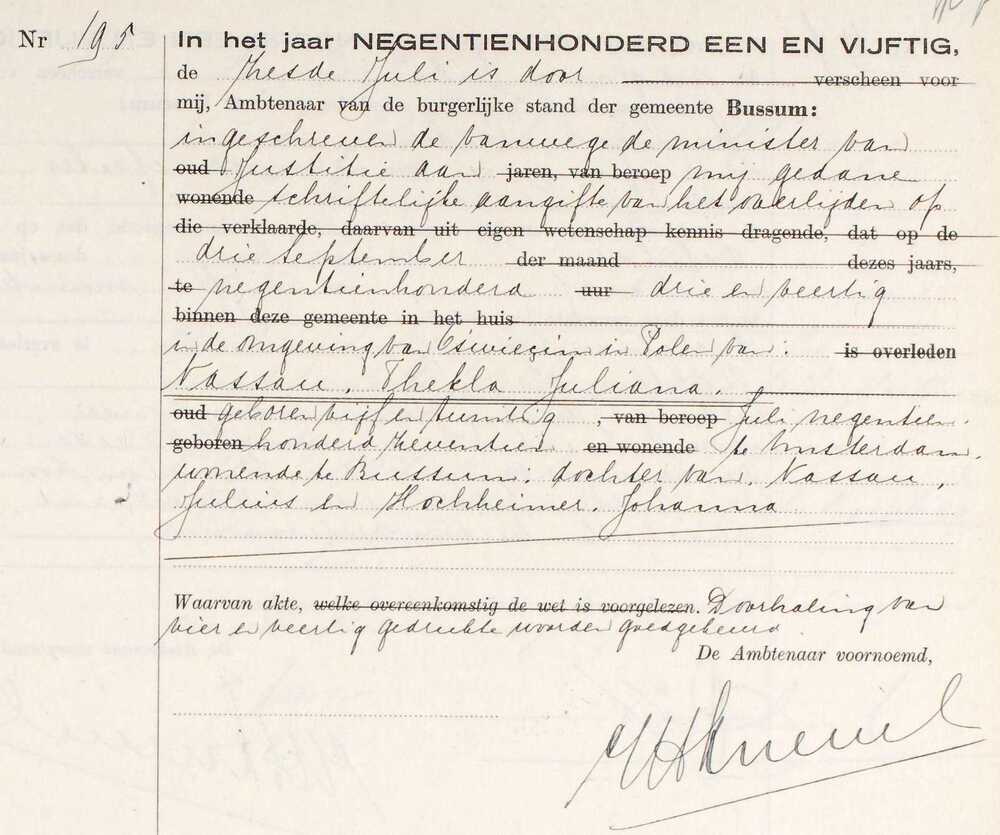 Nr 195 In het jaar NEGENTIENHONDERD EEN EN VIJFTIG,
de zesde Juli is door verscheen voor
mij, Ambtenaar van de burgerlijke stand der gemeente Bussum:
ingeschreven de vanwege de minister van
oud Justitie aan jaren, van beroep mij gedane
wonende schriftelijke aangifte van het overlijden op
die verklaarde, daarvan uit eigen wetenschap kennis dragende, dat op de
drie september der maand dezes jaars,
te negentienhonderd uur drie en veertig
binnen deze gemeente in het huis
in de omgeving van Oswiecim in Polen van: is overleden
Nassau, Thekla Juliana.
oud geboren vijf en twintig , van beroep Juli negentien-
geboren honderd zeventien en wonende te Amsterdam,
wonende te Bussum; dochter van Nassau,
Julius en Hochheimer, Johanna
Waarvan akte, welke overeenkomstig de wet is voorgelezen. Doorhaling van
vier en veertig gedrukte woorden goedgekeurd.
De Ambtenaar voornoemd,